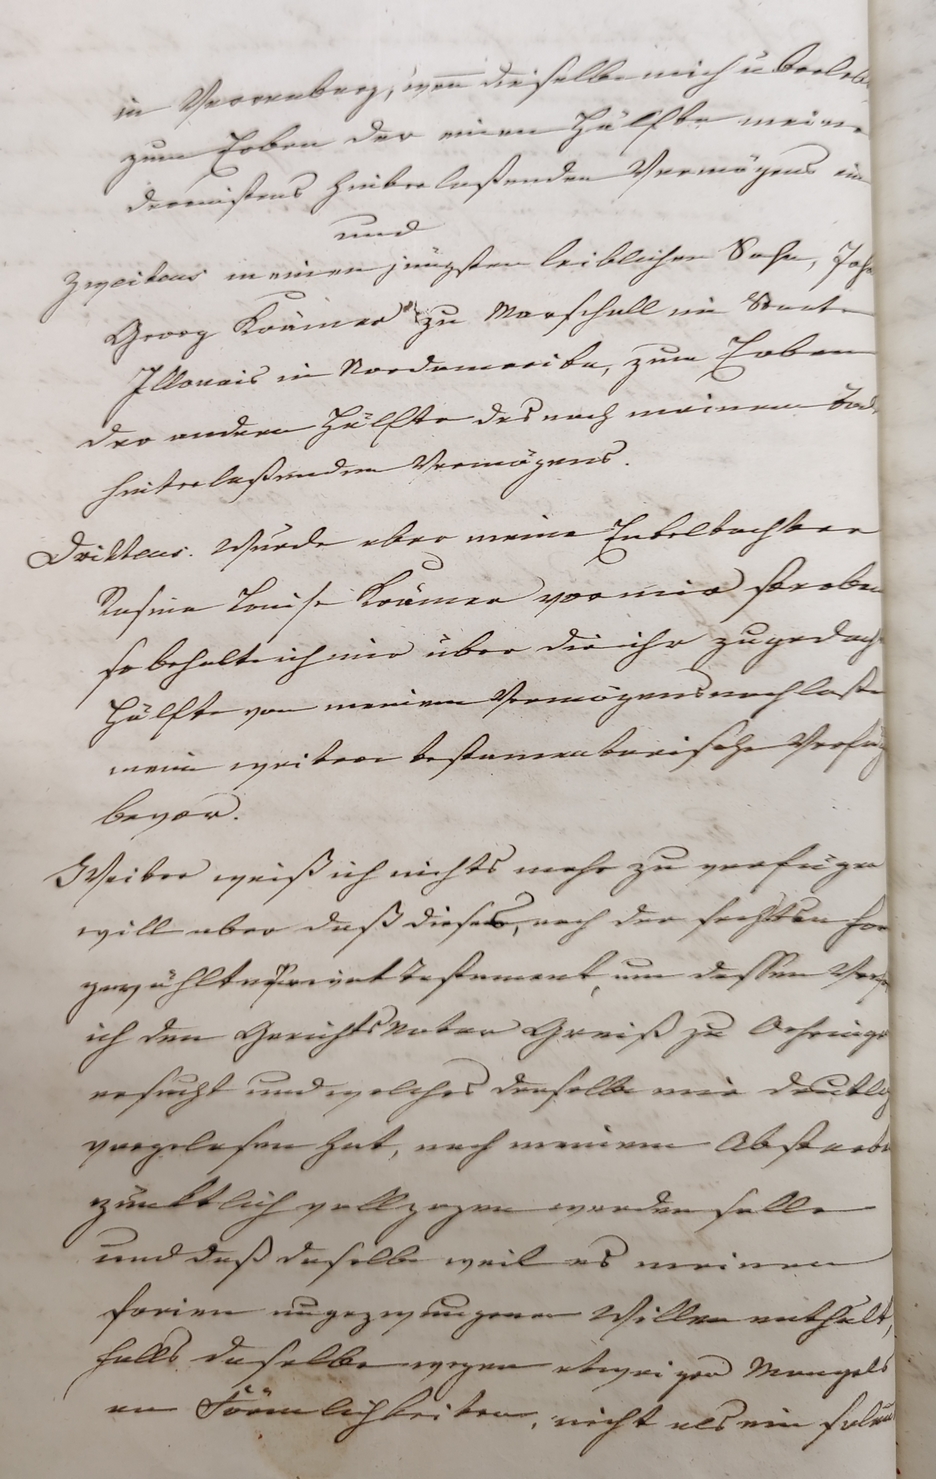 in Verrenberg, wenn dieselbe mich überlebt
zum Erben der einen Hälfte meines
dereinstens hinterlaßenden Vermögens ein
und
Zweitens meinen jüngsten leiblichen Sohn, Joh
Georg Krämer zu Marschall im Staate
Illonais in Nordamerika, zum Erben
der andern Hälfte des nach meinem Tod
hinterlaßenden Vermögens.
Drittens. Würde aber meine Enkeltochter
Rosine Louise Krämer vor mir sterben
so behalte ich mir über die ihr zugedach
Hälfte von meinem Vermögensnachlaße
mein weitere testamentarische Verfüg
bevor.
Weiter weiß ich nichts mehr zu verfügen
will aber daß dieses, nach der sechsten For
gewählte Privat Testament, um dessen Verf
ich den Gerichts Notar Greiß zu Oehringen
ersucht und welches derselbe mir deutlich
vorgelesen hat, nach meinem Absterben
pünktlich vollzogen werden solle
und daß daselbe weil es meinen
freien ungezwungenen Willen enthält,
falls daselbe wegen etwaigen Mangels
an Förmlichkeiten, nicht als ein solen